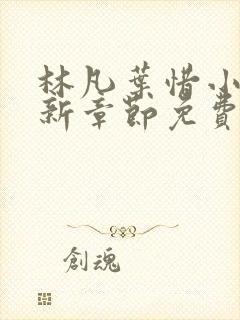 林凡葉惜小
新章節免費
創魂